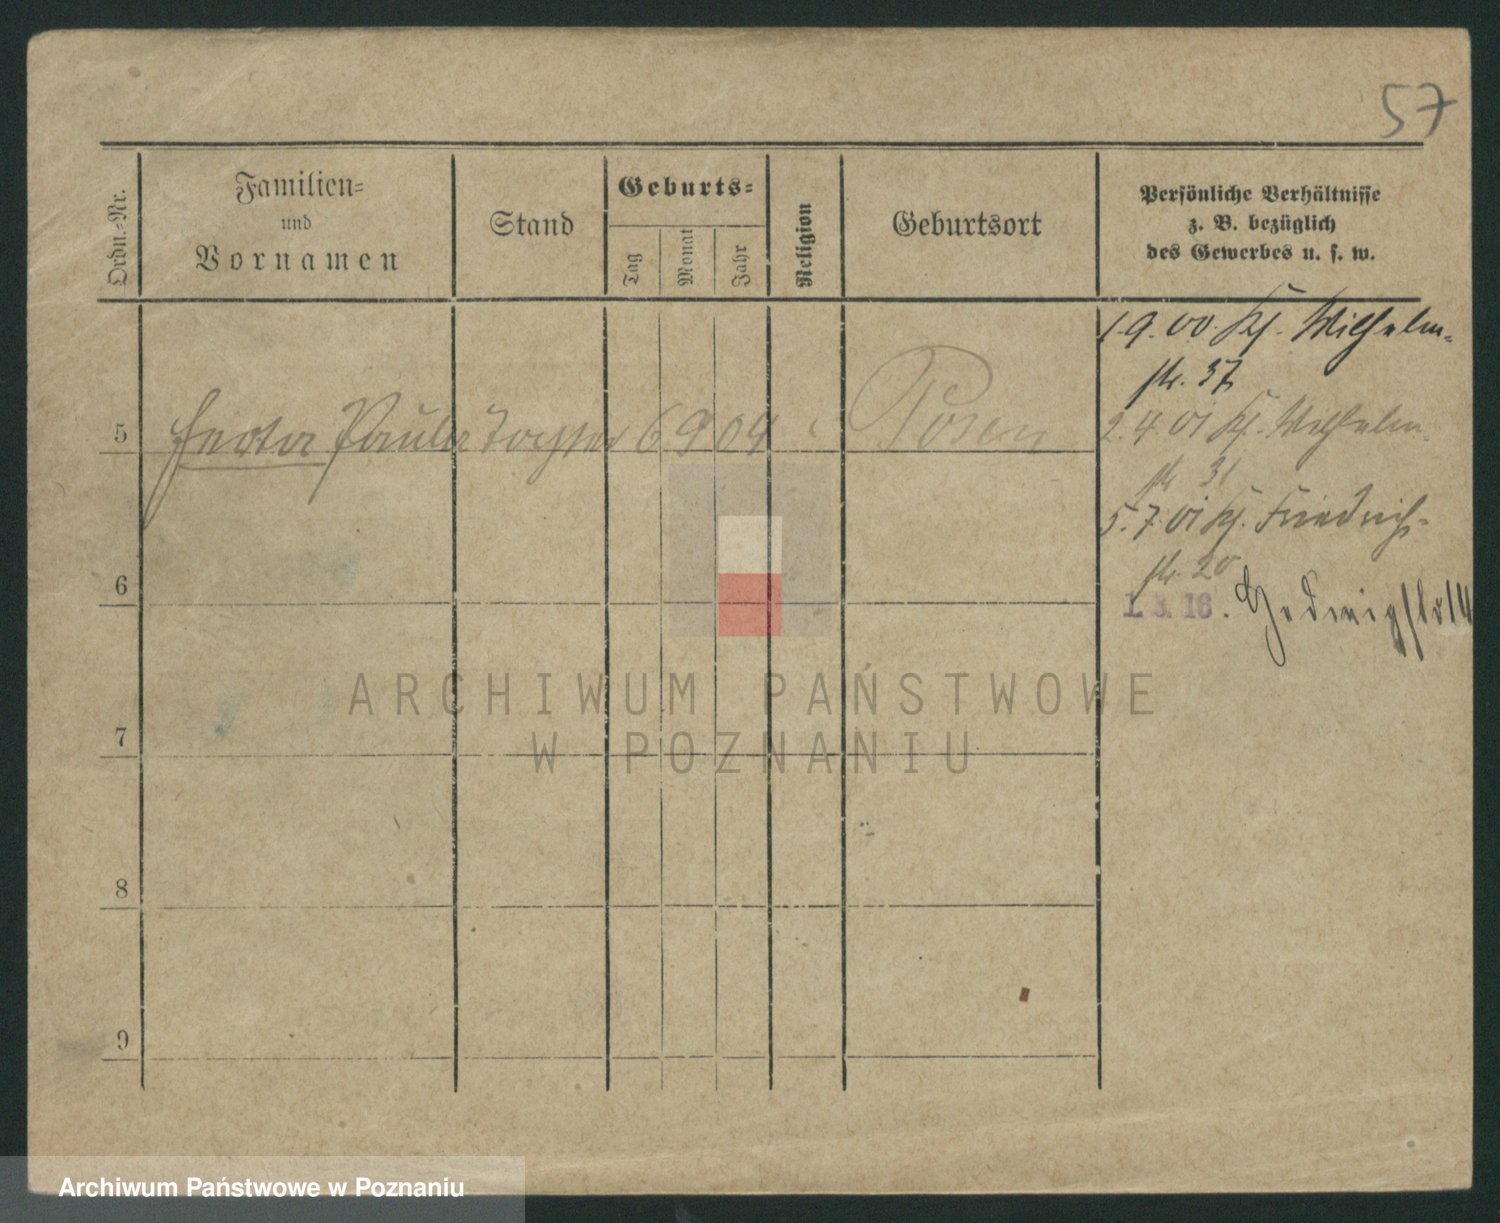 57
Ordn.-Nr.
Familien-
und
Vornamen
Stand
Geburts-
Tag
Monat
Jahr
Religion
Geburtsort
Persönliche Verhältnisse
z. B. bezüglich
des Gewerbes u. s. w.
1.9.00. Kf. Wilhelm-
str. 37
5
Paula Tochter 6 9 04 Posen
2.4.01 Kf. Wilhelm-
str. 31
5.7.01 Kf. Friedrich-
str. 20
6
1. 3. 16. Hedwigstr 14
7
8
9
ARCHIWUM PAŃSTWOWE
W POZNANIU
Archiwum Państwowe w Poznaniu